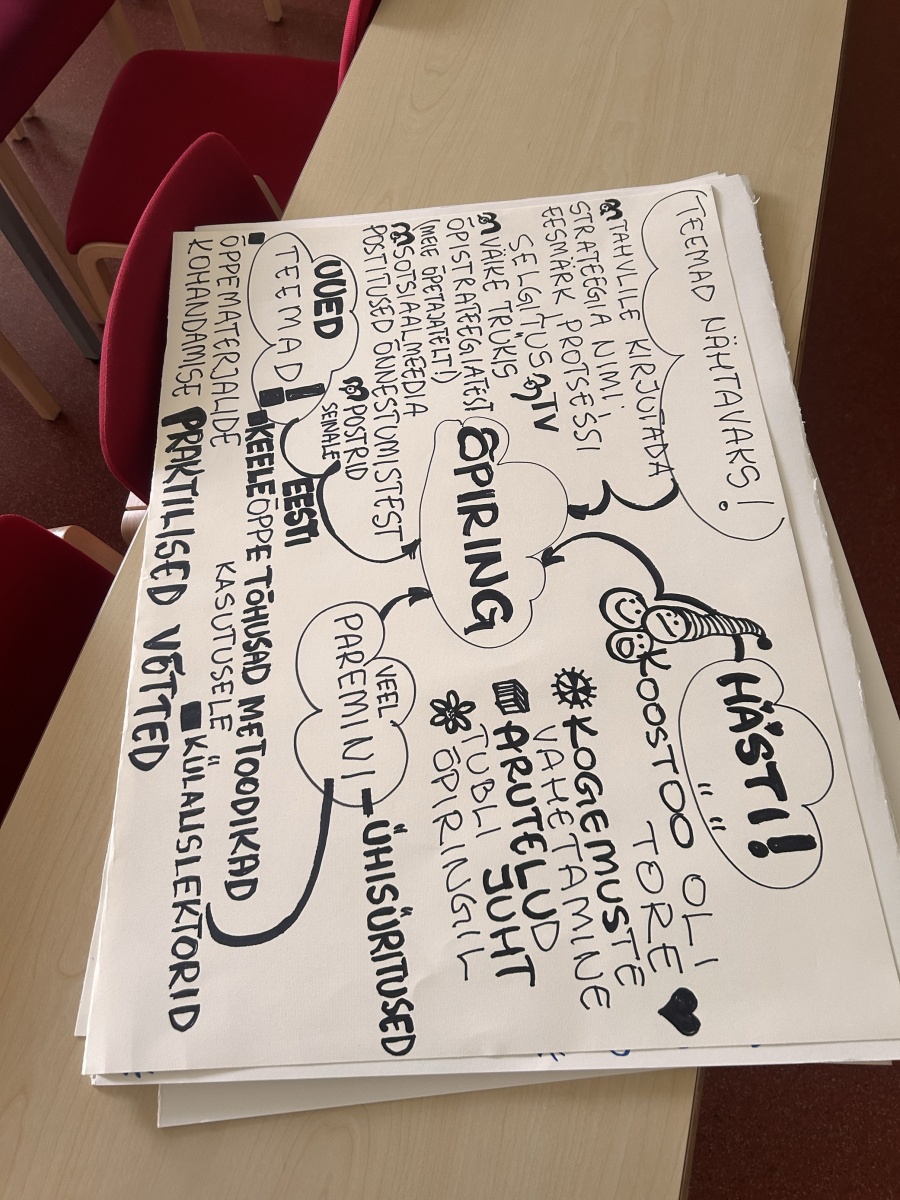 TEEMAD NÄHTAVAKS!
TAHVLILE KIRJUTADA
STRATEEGIA NIMI
EESMÄRK PROTSESSI
SELGITUS TV
VÄIKE TRÜKIS
ÕPISTRATEEGIATEST
(MEIE ÕPETAJATELT!)
SOTSIAALMEEDIA
POSTITUSED ÕNNESTUMISTEST
POSTRID
SEINALE
ÕPIRING
HÄSTI!
KOOSTÖÖ OLI
TORE
KOGEMUSTE
VAHETAMINE
ARUTELUD
TUBLI JUHT
ÕPIRINGIL
UUED
TEEMAD!
EESTI
KEELE ÕPPE TÕHUSAD METOODIKAD
KASUTUSELE
ÕPPEMATERJALIDE
KOHANDAMISE PRAKTILISED VÕTTED
KÜLALISLEKTORID
VEEL
PAREMINI
- ÜHISÜRITUSED